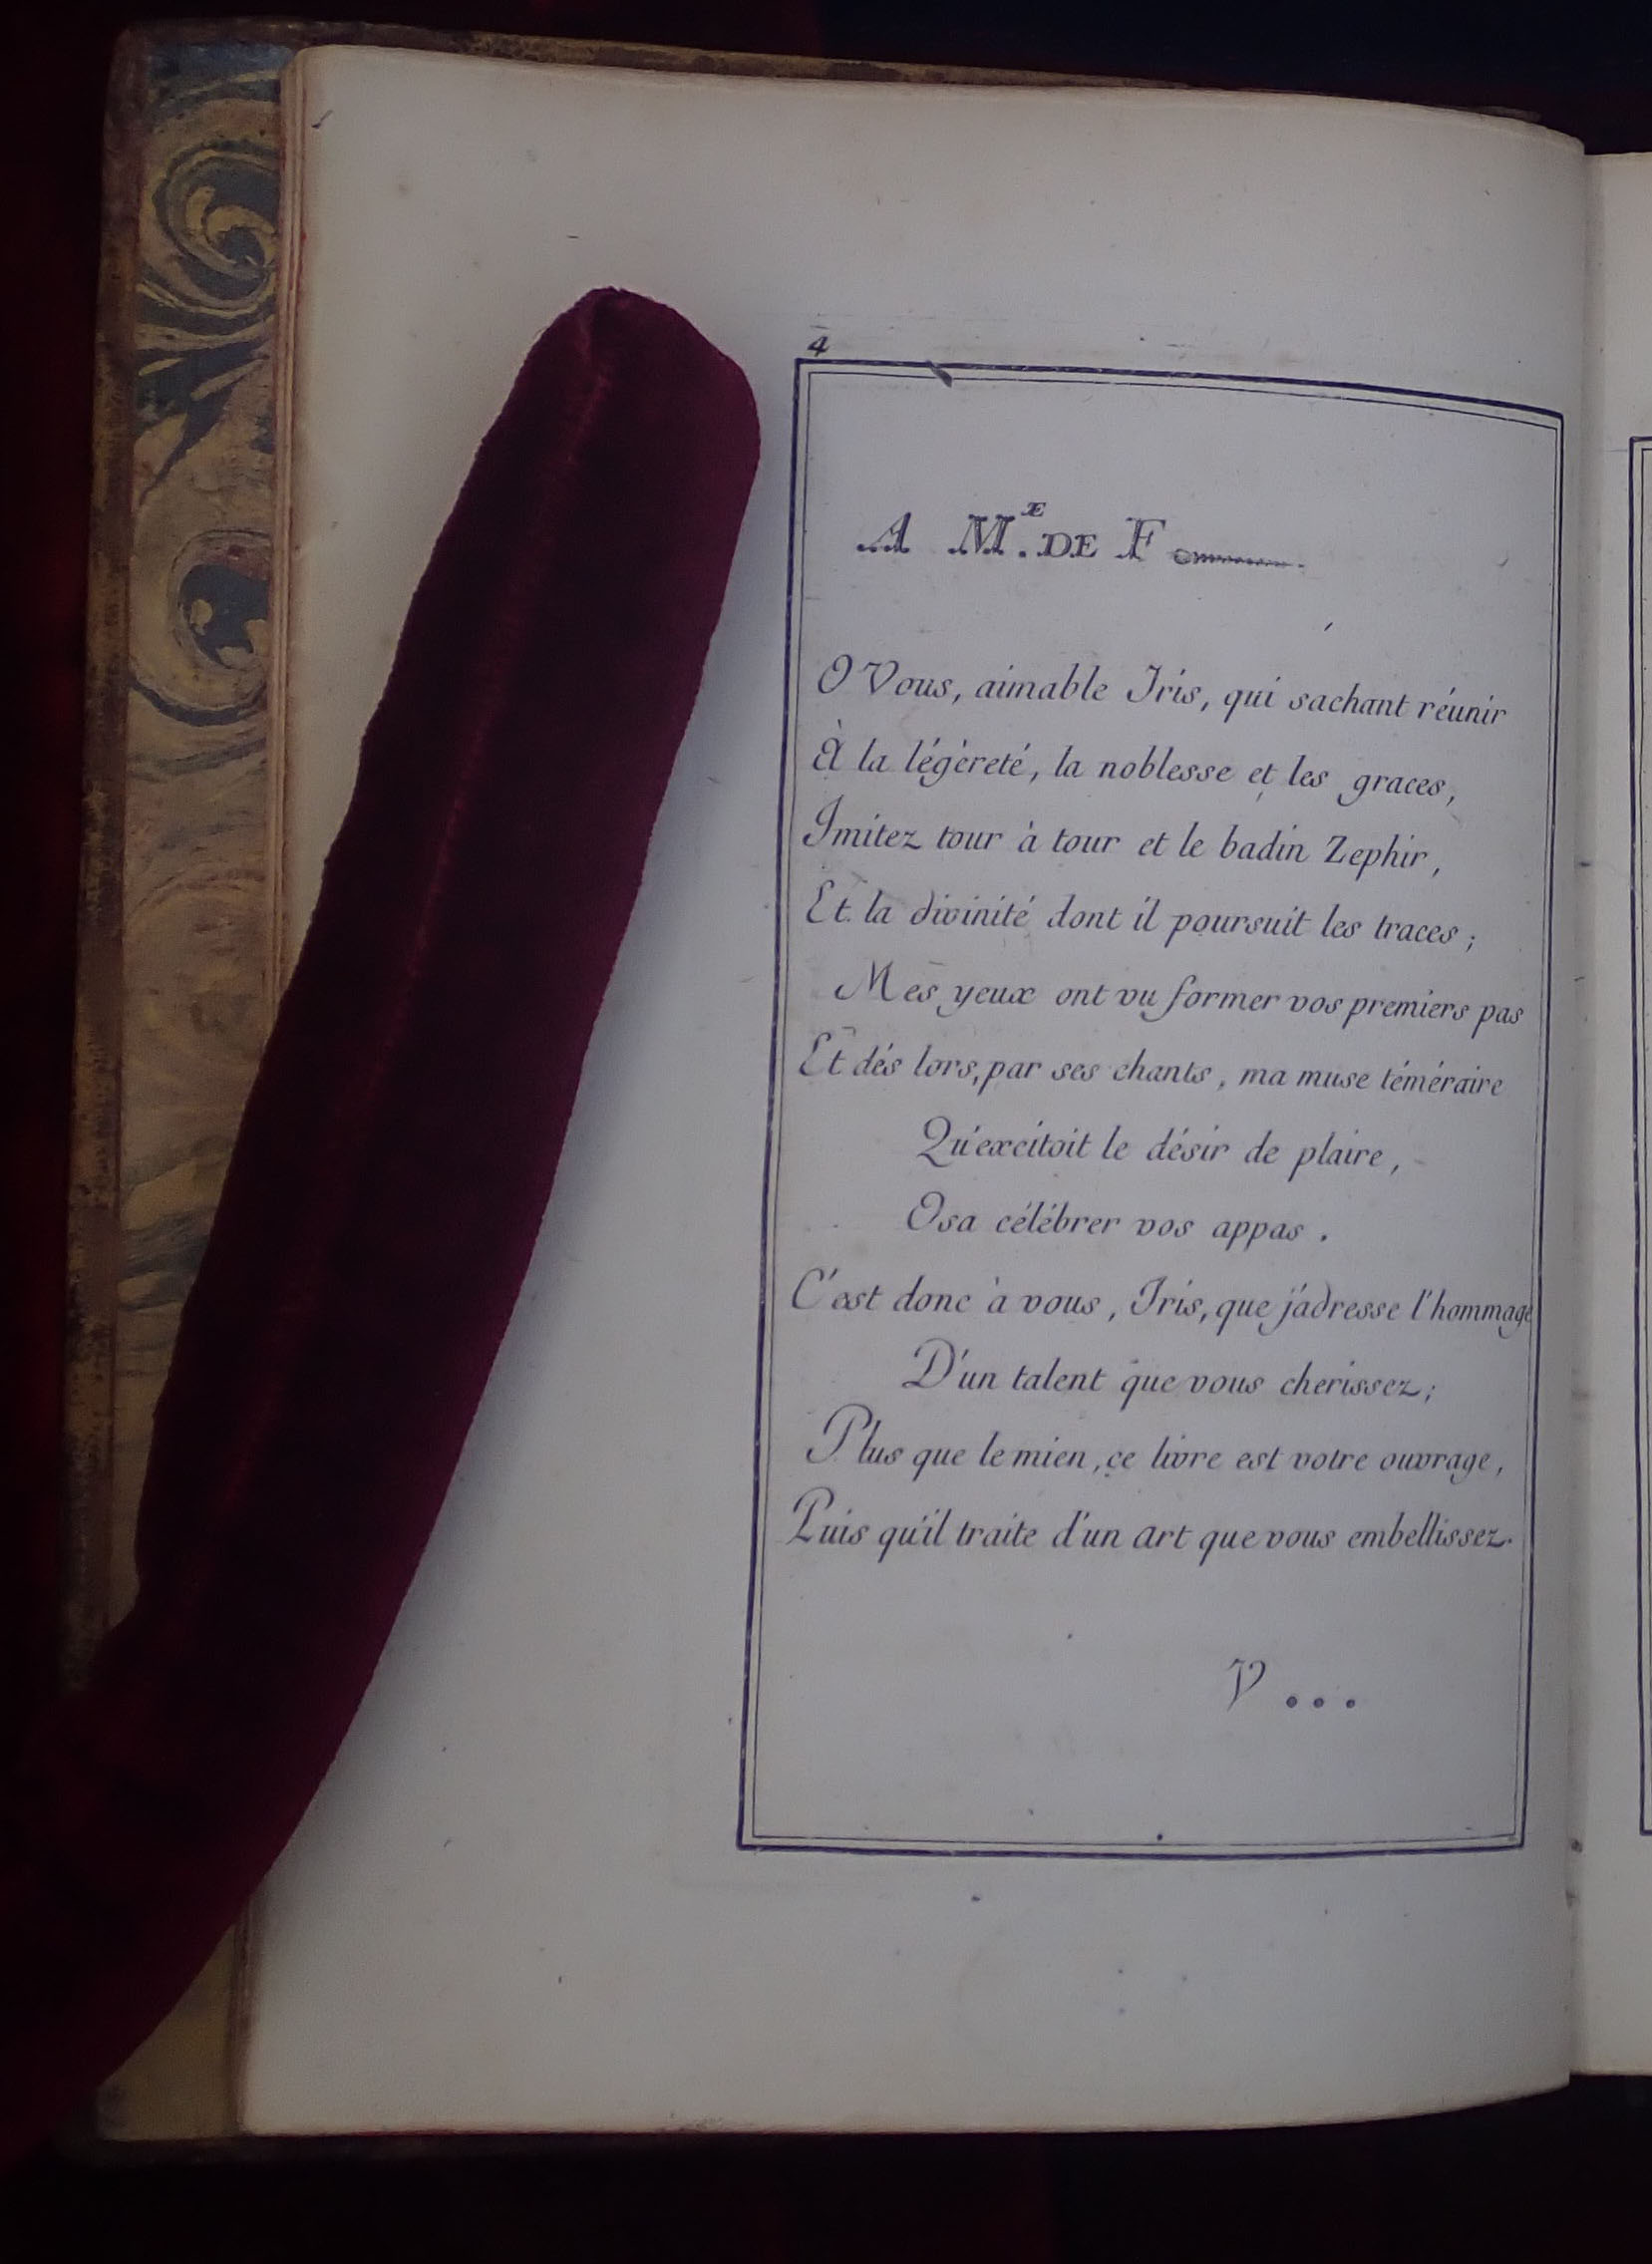 4
A M.E DE F
O Vous, aimable Iris, qui sachant réunir
À la légéreté, la noblesse et les graces,
Imitez tour à tour et le badin Zephir,
Et la divinité dont il poursuit les traces;
Mes yeux ont vu former vos premiers pas
Et dés lors, par ses chants, ma muse téméraire
Qu'excitoit le désir de plaire,
Osa célébrer vos appas.
C'est donc à vous, Iris, que j'adresse l'hommage
D'un talent que vous cherissez;
Plus que le mien, ce livre est votre ouvrage,
Puis qu'il traite d'un art que vous embellissez.
V...